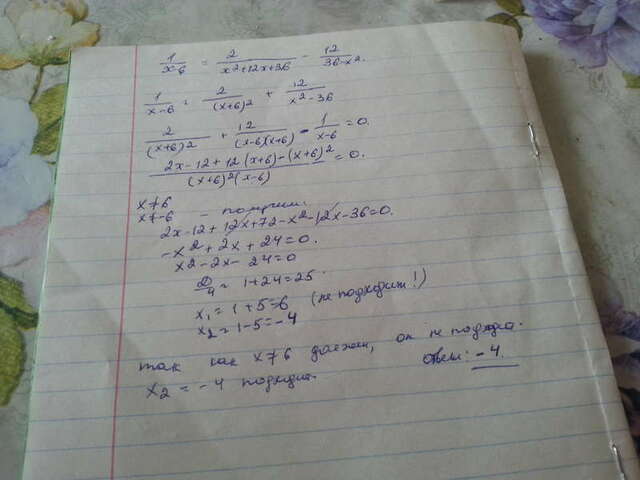 1/x-6 = 2/x²+12x+36 - 12/36-x².
1/x-6 = 2/(x+6)² + 12/x²-36
2/(x+6)² + 12/(x-6)(x+6) - 1/x-6 = 0
2x-12+12(x+6)-(x+6)²/(x+6)²(x-6) = 0.
x≠6
x≠-6
2x-12+12x+72-x²-12x-36=0.
-x²+2x+24=0.
x²-2x-24=0
D/4 = 1+24=25.
x₁=1+5=6 (не подходит!)
x₂=1-5=-4
так как x≠6 он не подходит.
x₂ = -4 подходит.
Ответ: -4